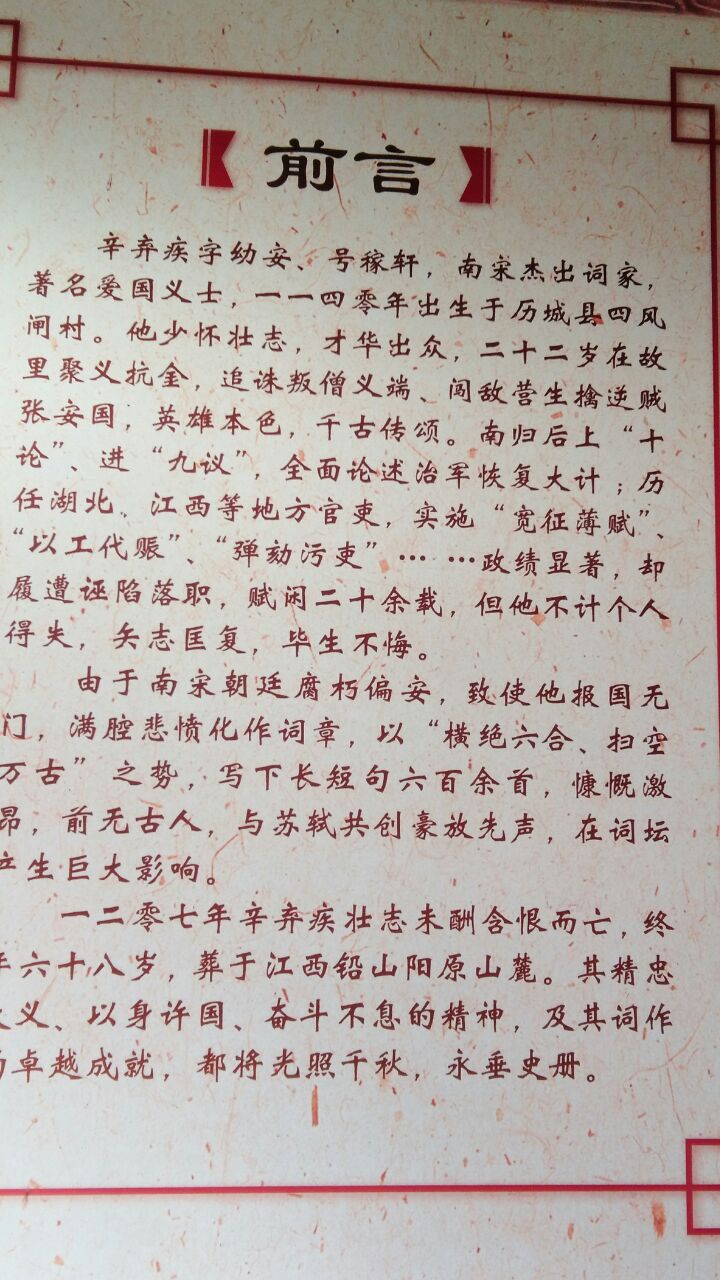 前言
辛弃疾字幼安、号稼轩，南宋杰出词家，
著名爱国义士，一一四零年出生于历城县四风
闸村。他少怀壮志，才华出众，二十二岁在故
里聚义抗金，追诛叛僧义端、闯敌营生擒逆贼
张安国，英雄本色，千古传颂。南归后上“十
论”、进“九议”，全面论述治军恢复大计；历
任湖北、江西等地方官吏，实施“宽征薄赋”、
“以工代赈”、“弹劾污吏”……政绩显著，却
履遭诬陷落职，赋闲二十余载，但他不计个人
得失，矢志匡复，毕生不悔。
由于南宋朝廷腐朽偏安，致使他报国无
门，满腔悲愤化作词章，以“横绝六合、扫空
万古”之势，写下长短句六百余首，慷慨激
昂，前无古人，与苏轼共创豪放先声，在词坛
产生巨大影响。
一二零七年辛弃疾壮志未酬含恨而亡，终
年六十八岁，葬于江西铅山阳原山麓。其精忠
大义、以身许国、奋斗不息的精神，及其词作
的卓越成就，都将光照千秋，永垂史册。